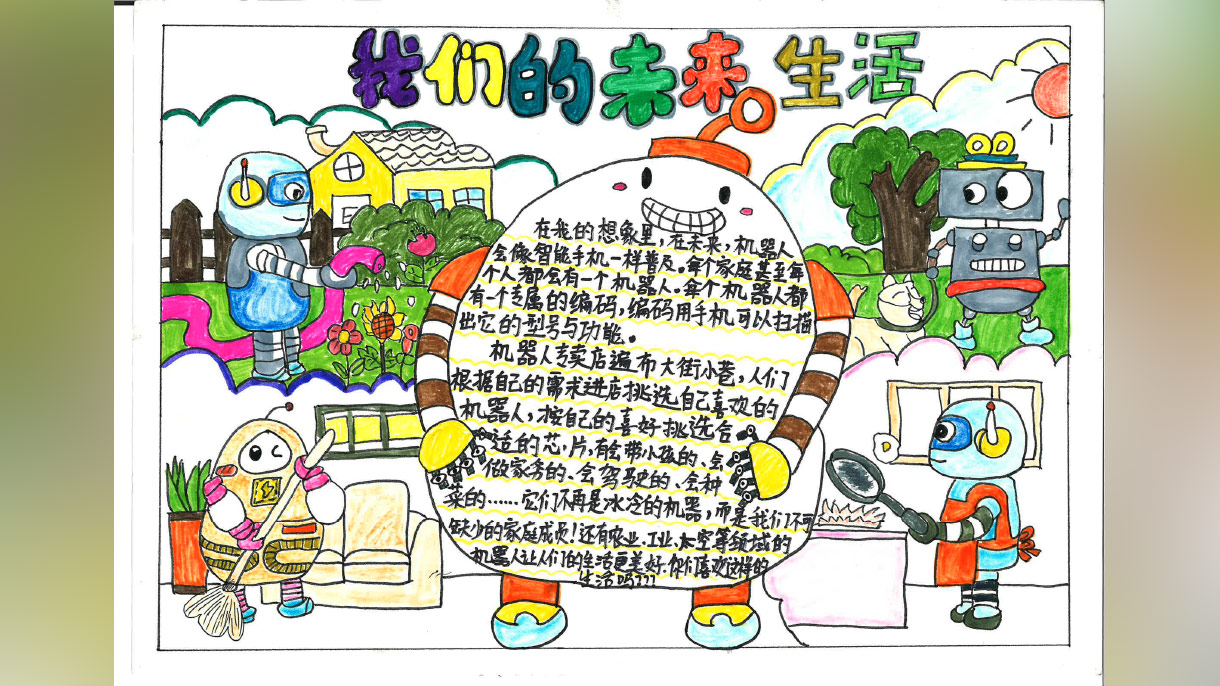 我们的未来生活
在我的想象里，在未来，机器人
会像智能手机一样普及。每个家庭甚至每
个人都会有一个机器人。每个机器人都
有一个专属的编码，编码用手机可以扫描
出它的型号与功能。
机器人专卖店遍布大街小巷，人们
根据自己的需求进店挑选自己喜欢的
机器人，按自己的喜好挑选合
适的芯片，有会带小孩的、会
做家务的、会驾驶的、会种
菜的……它们不再是冰冷的机器，而是我们不可
缺少的家庭成员！还有农业、工业、太空等领域的
机器人让人们的生活更美好.你们喜欢这样的
生活吗???